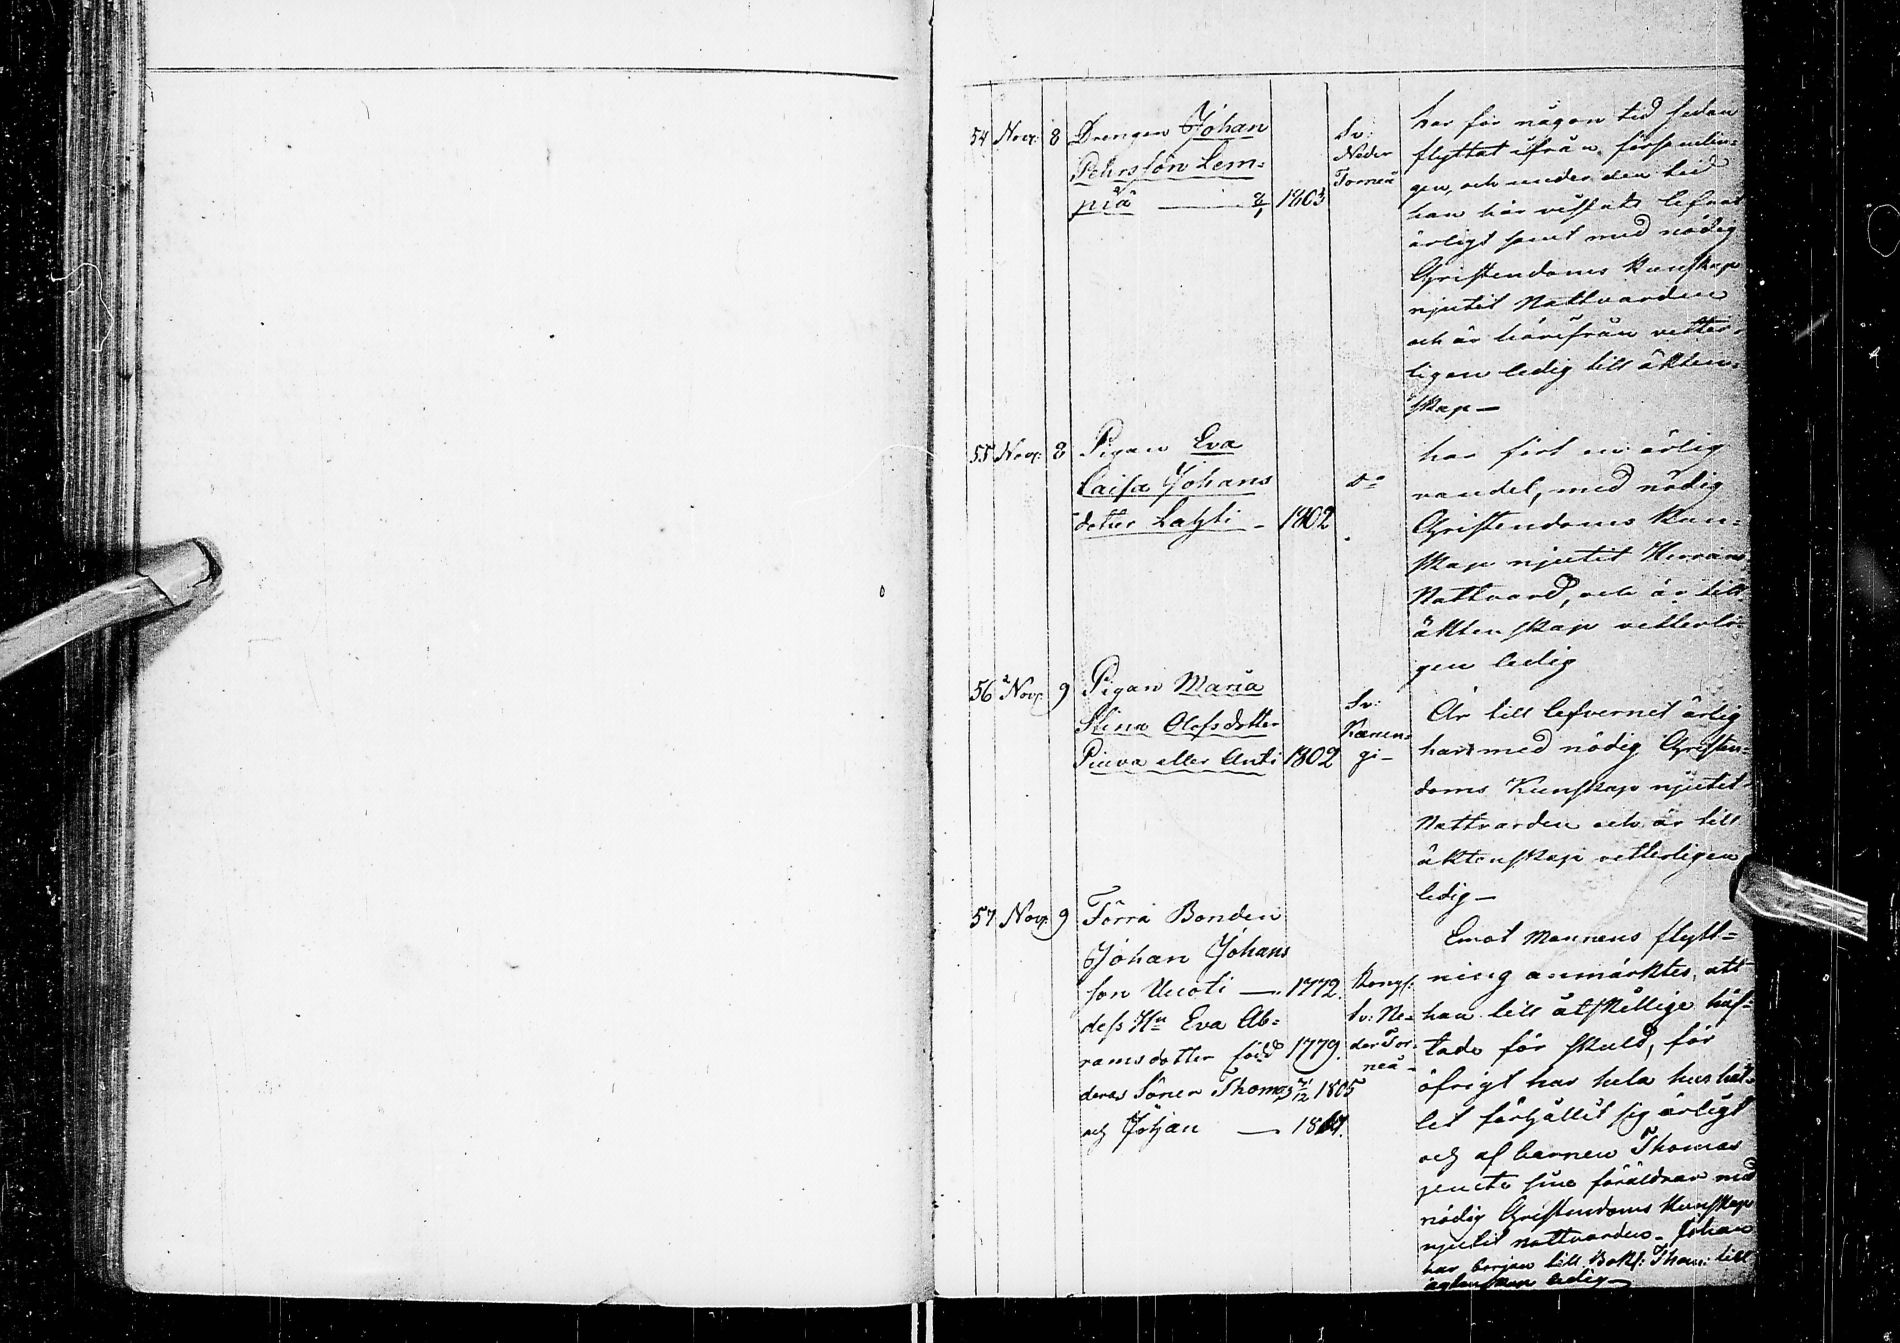 54 Nov: 8 Drengen Johan
Pehrsson Lem=
piä — 8/1 1803
Sv:
Neder
Torneå
har för någon tid sedan
flyttat ifrån församlin=
gen, och under den tid
han här vistats lefvat
ärligt samt med nödig
Christendoms kunskap
njutit Nattvarden
och är härifrån vetter=
ligen ledig till äkten=
skap —
55 Nov: 8 Pigan Eva
Caisa Johans
dotter Lahti — 1802
do
har fört en ärlig
vandel, med nödig
Christendoms Kun=
skap njutit Herrans
Nattvard, och är till
äktenskap vetterli=
gen ledig
56 Nov: 9 Pigan Maria
Stina Olofsdotter
eller Anti 1802
Sv:
Karun=
gi —
Är till lefvernet ärlig
har med nödig Christen=
doms Kunskap njutit
Nattvarden och är till
äktenskap vetterligen
ledig —
57 Nov: 9 Förra Bonden
Johan Johans
son — 1772.
dess Hu Eva Ab=
ramsdotter född 1779.
deras Söner Thomas 21/12 1805
och Johan —
Sv: Ne=
der Tor=
neå —
Emot Mannens flytt=
ning anmärktes, att
han till åtskillige häf=
tade för skuld, för
öfrigt har hela hushål=
let förhållit sig ärligt
och af barnen Thomas
jemte sine föräldrar med
nödig Christendoms Kunskap
njutit nattvarden. Johan
har början till Bok: Thom: till
äktenskap ledig —